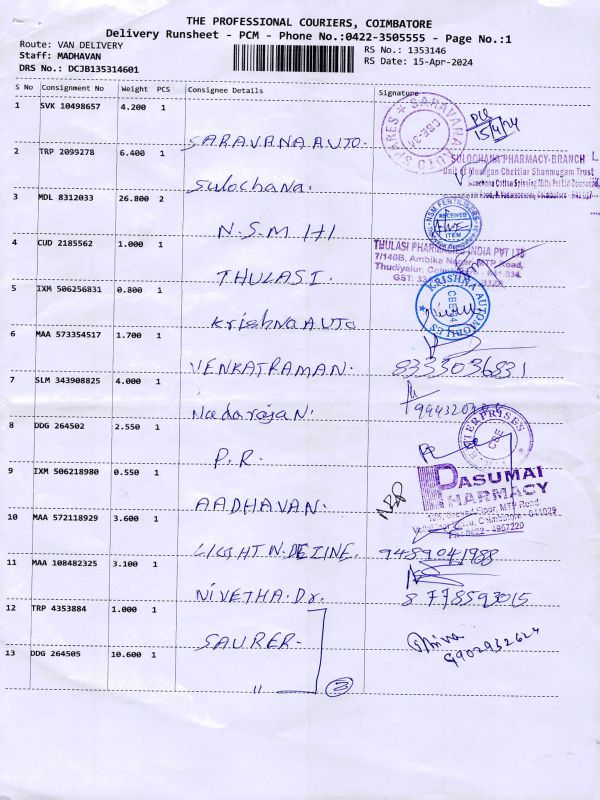 THE PROFESSIONAL COURIERS, COIMBATORE
Delivery Runsheet - PCM - Phone No.:0422-3505555 - Page No.:1
Route: VAN DELIVERY
RS No.: 1353146
Staff: MADHAVAN
RS Date: 15-Apr-2024
DRS No.: DCJB135314601
S No Consignment No Weight PCS Consignee Details Signature
1 SVK 10498657 4.200 1 SARAVANA AUTO
SARAVANA AUTO SPARES
15/4/24
2 TRP 2099278 6.400 1 Sulochana.
SULOCHANA PHARMACY-BRANCH
Unit of Murugan Chettiar Shanmugam Trust
3 MDL 8312033 26.800 2 N.S.M
RECEIVED
ITEM
4 CUD 2185562 1.000 1 THULASI.
THULASI PHARMACIES INDIA PVT LTD
7/140B, Ambika Nagar, MTP Road,
Thudiyalur,
GST:
5 IXM 506256831 0.800 1 Krishna AUTO
KRISHNA AUTOMOBILES
6 MAA 573354517 1.700 1 VENKATRAMAN.
8333036831
7 SLM 343908825 4.000 1 Nadarajan.
8 DDG 264502 2.550 1 P.R.
CBE
9 IXM 506218980 0.550 1 AADHAVAN.
PASUMAI
PHARMACY
10 MAA 572118929 3.600 1 LIGHT N DEZINE.
9489041988
11 MAA 108482325 3.100 1 NIVETHA.Dr.
8778593015
12 TRP 4353884 1.000 1 SAURER-
9902932624
13 DDG 264505 10.600 1 "
3